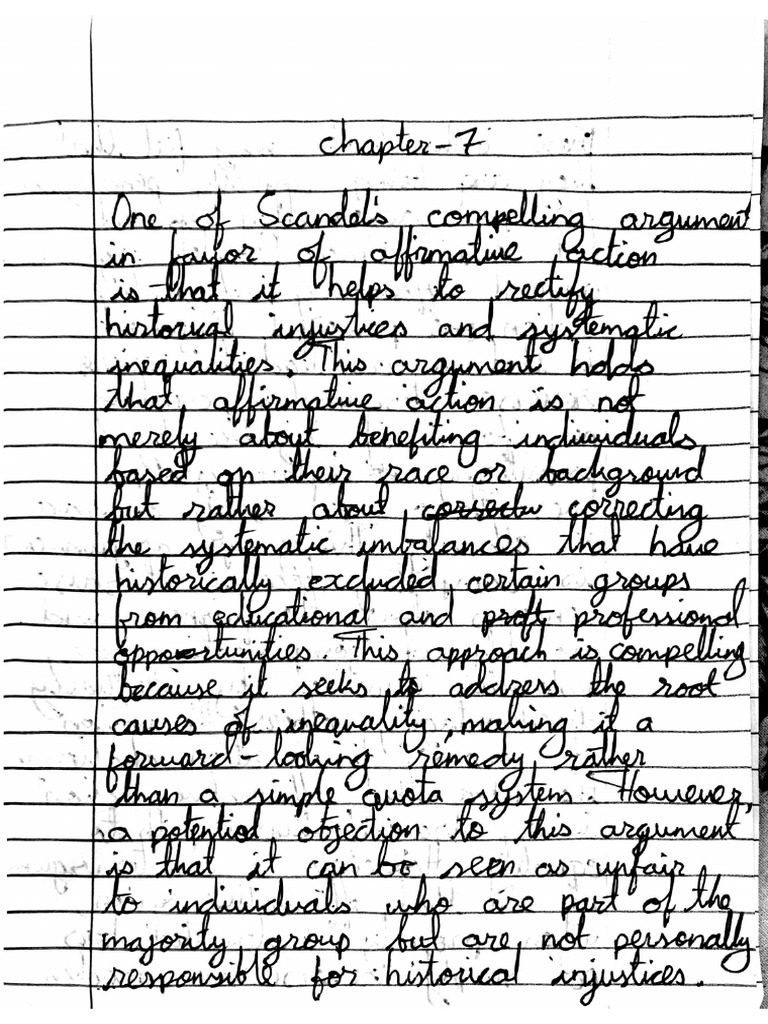 chapter-7
One of Scandel's compelling argument
in favor of affirmative action
is that it helps to rectify
historical injustices and systematic
inequalities. This argument holds
that affirmative action is not
merely about benefiting individuals
based on their race or background
but rather about correcting
the systematic imbalances that have
historically excluded certain groups
from educational and proft professional
opportunities. This approach is compelling
because it seeks to address the root
causes of inequality, making it a
forward-looking remedy rather
than a simple quota system. However,
a potential objection to this argument
is that it can be seen as unfair
to individuals who are part of the
majority group but are not personally
responsible for historical injustices.